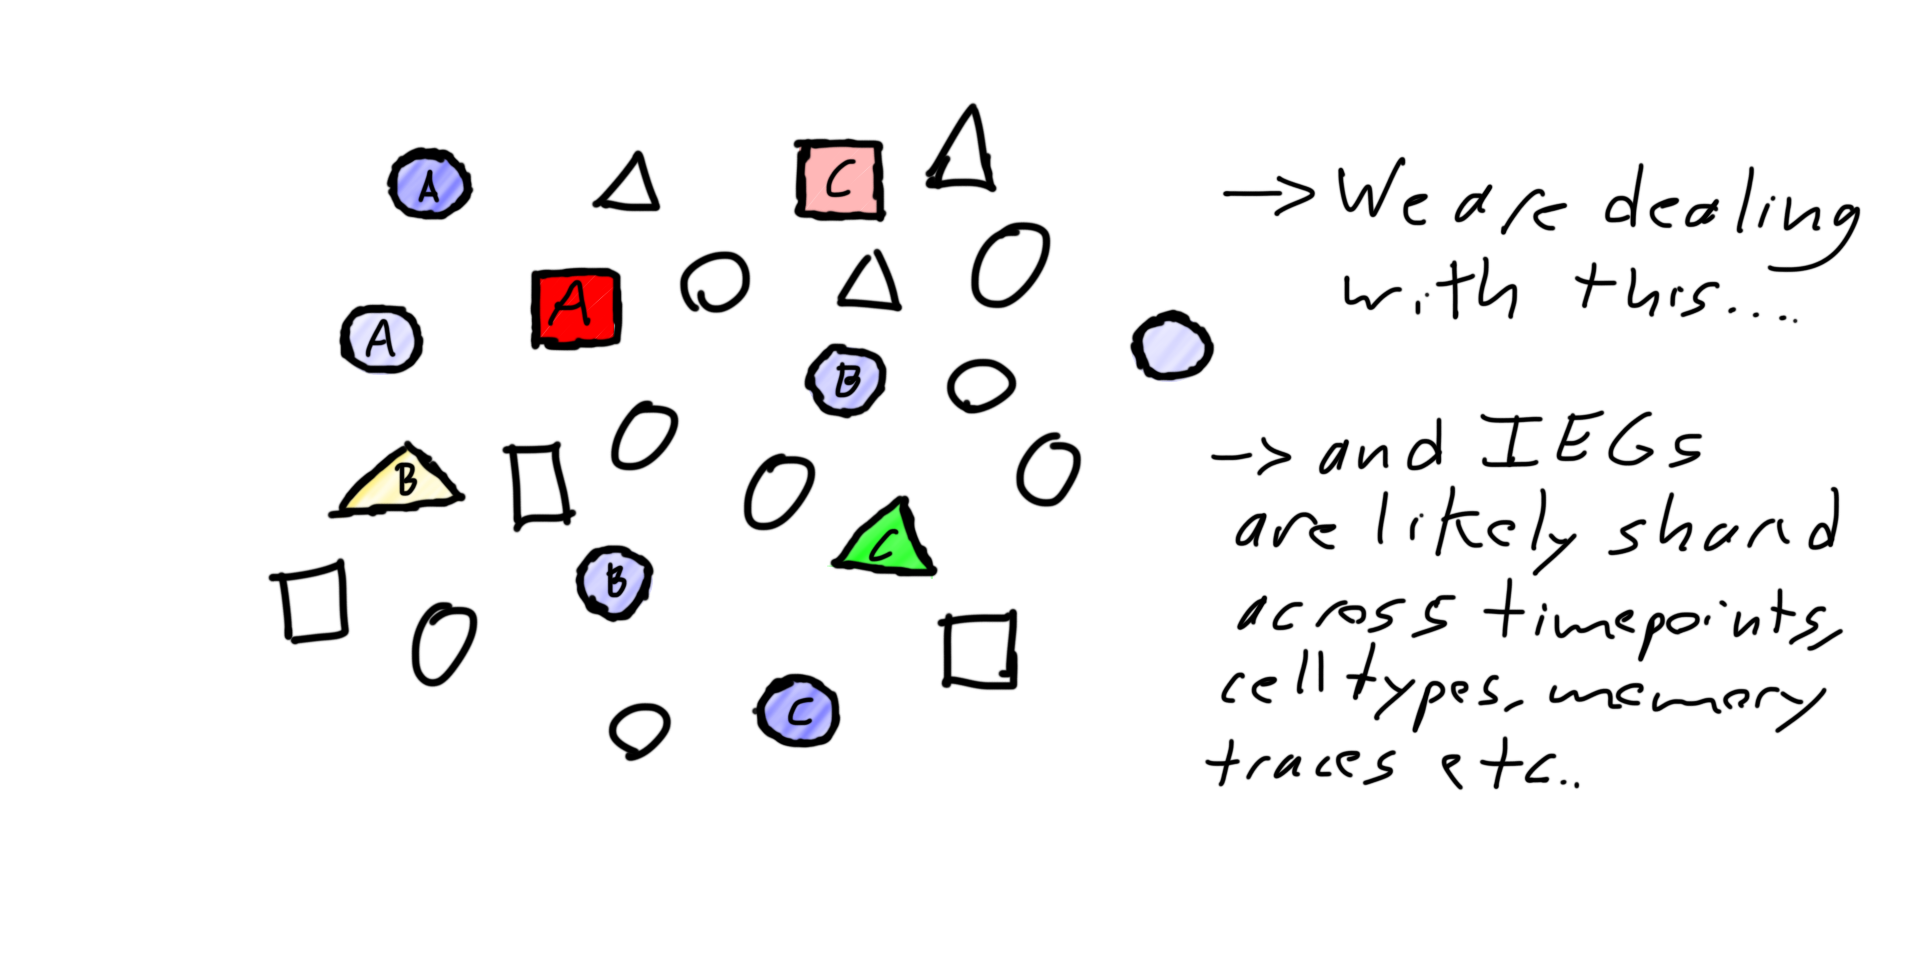 A
C
A
A
B
B
C
B
C
→ We are dealing
with this....
→ and IEGs
are likely shared
across timepoints,
cell types, memory
traces etc..